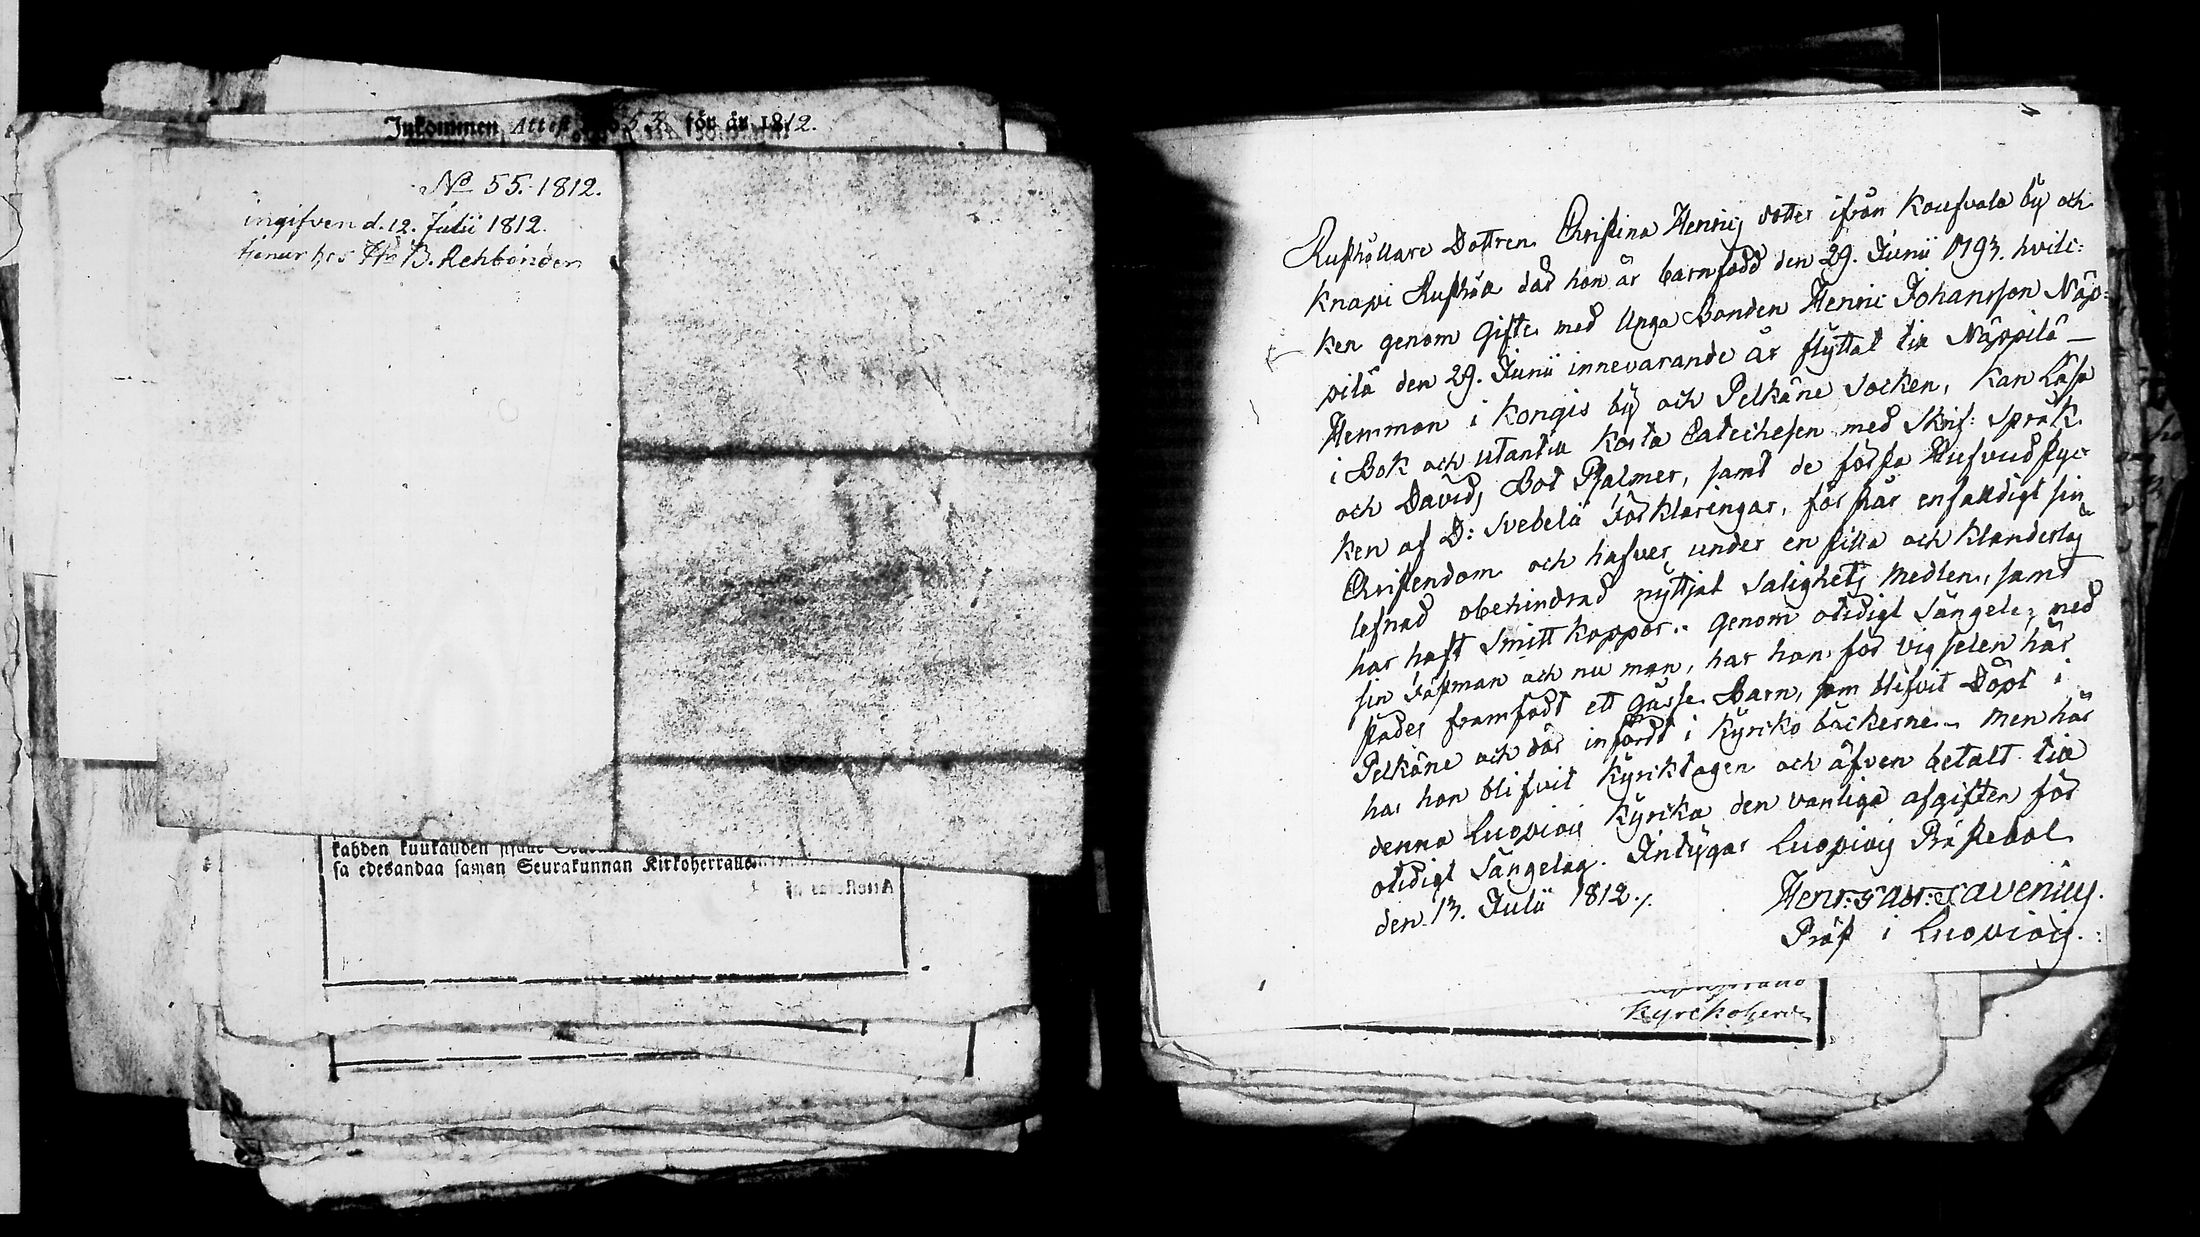 Inkommen Attest No 53. för år 1812.
No 55. 1812.
ingifven d. 12. Julii 1812.
tienar hos Hr B. Rehbinder
kahden kuukauden sisälle
sa edesandaa saman Seurakunnan Kirkoherralle
Rusthållare Dottren Christina Henrics dotter ifrån Koufvala by och
Knapi Rusthåll dær hon är barnfödd den 29. Junii 1793. hvil-
ken genom Gifte med Unga Bonden Henric Johansson Näp-
pilä den 29. Junii innevarande år flyttat till Näppilä
Hemman i Kongis by och Pelkäne Socken, Kan Läsa
i Bok och utantill Korta Catechesen med Skrif: Språk
och Davids Bot Psalmer, samt de förste Hufvudstyc-
ken af D: Svebelii Förklaringar, förstår enfalldigt sin
Christendom och hafver under en stilla och klanderlös
lefnad obehindrad nyttjat Salighets Medlen, samt
har haft Smittkoppor. Genom otidigt Sängelag med
sin Fästman och nu man, har hon för vigselen här
städes framfödt ett Gosse Barn, som blifvit Döpt i
Pelkäne och där infördt i Kyrcko böckerne. Men här
har hon blifvit Kyrktagen och äfven betalt till
denna Luopiois Kyrcka den vanliga afgiften för
otidigt Sängelag. Intygar Luopiois Prästebol
den 13. Julii 1812./.
Henr: Gabr: Favenius.
Präst i Luopiois.
Kyrckoherde